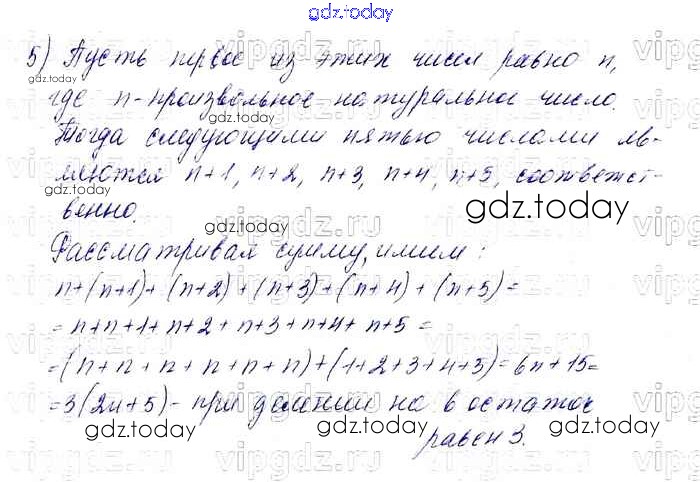 gdz.today
5) Пусть первое из этих чисел равно n,
gdz.today
где n - произвольное натуральное число.
Тогда следующими пятью числами яв-
ляются n+1, n+2, n+3, n+4, n+5, соответст-
gdz.today
венно.
gdz.today
gdz.today
Рассматривая сумму, имеем:
n+(n+1)+(n+2)+(n+3)+(n+4)+(n+5)=
= n+n+1+n+2+n+3+n+4+n+5=
=(n+n+n+n+n+n)+(1+2+3+4+5)=6n+15=
=3(2n+5) - при делении на 6 остаток
gdz.today
gdz.today
gdz.today
равен 3.
vipgdz.ru